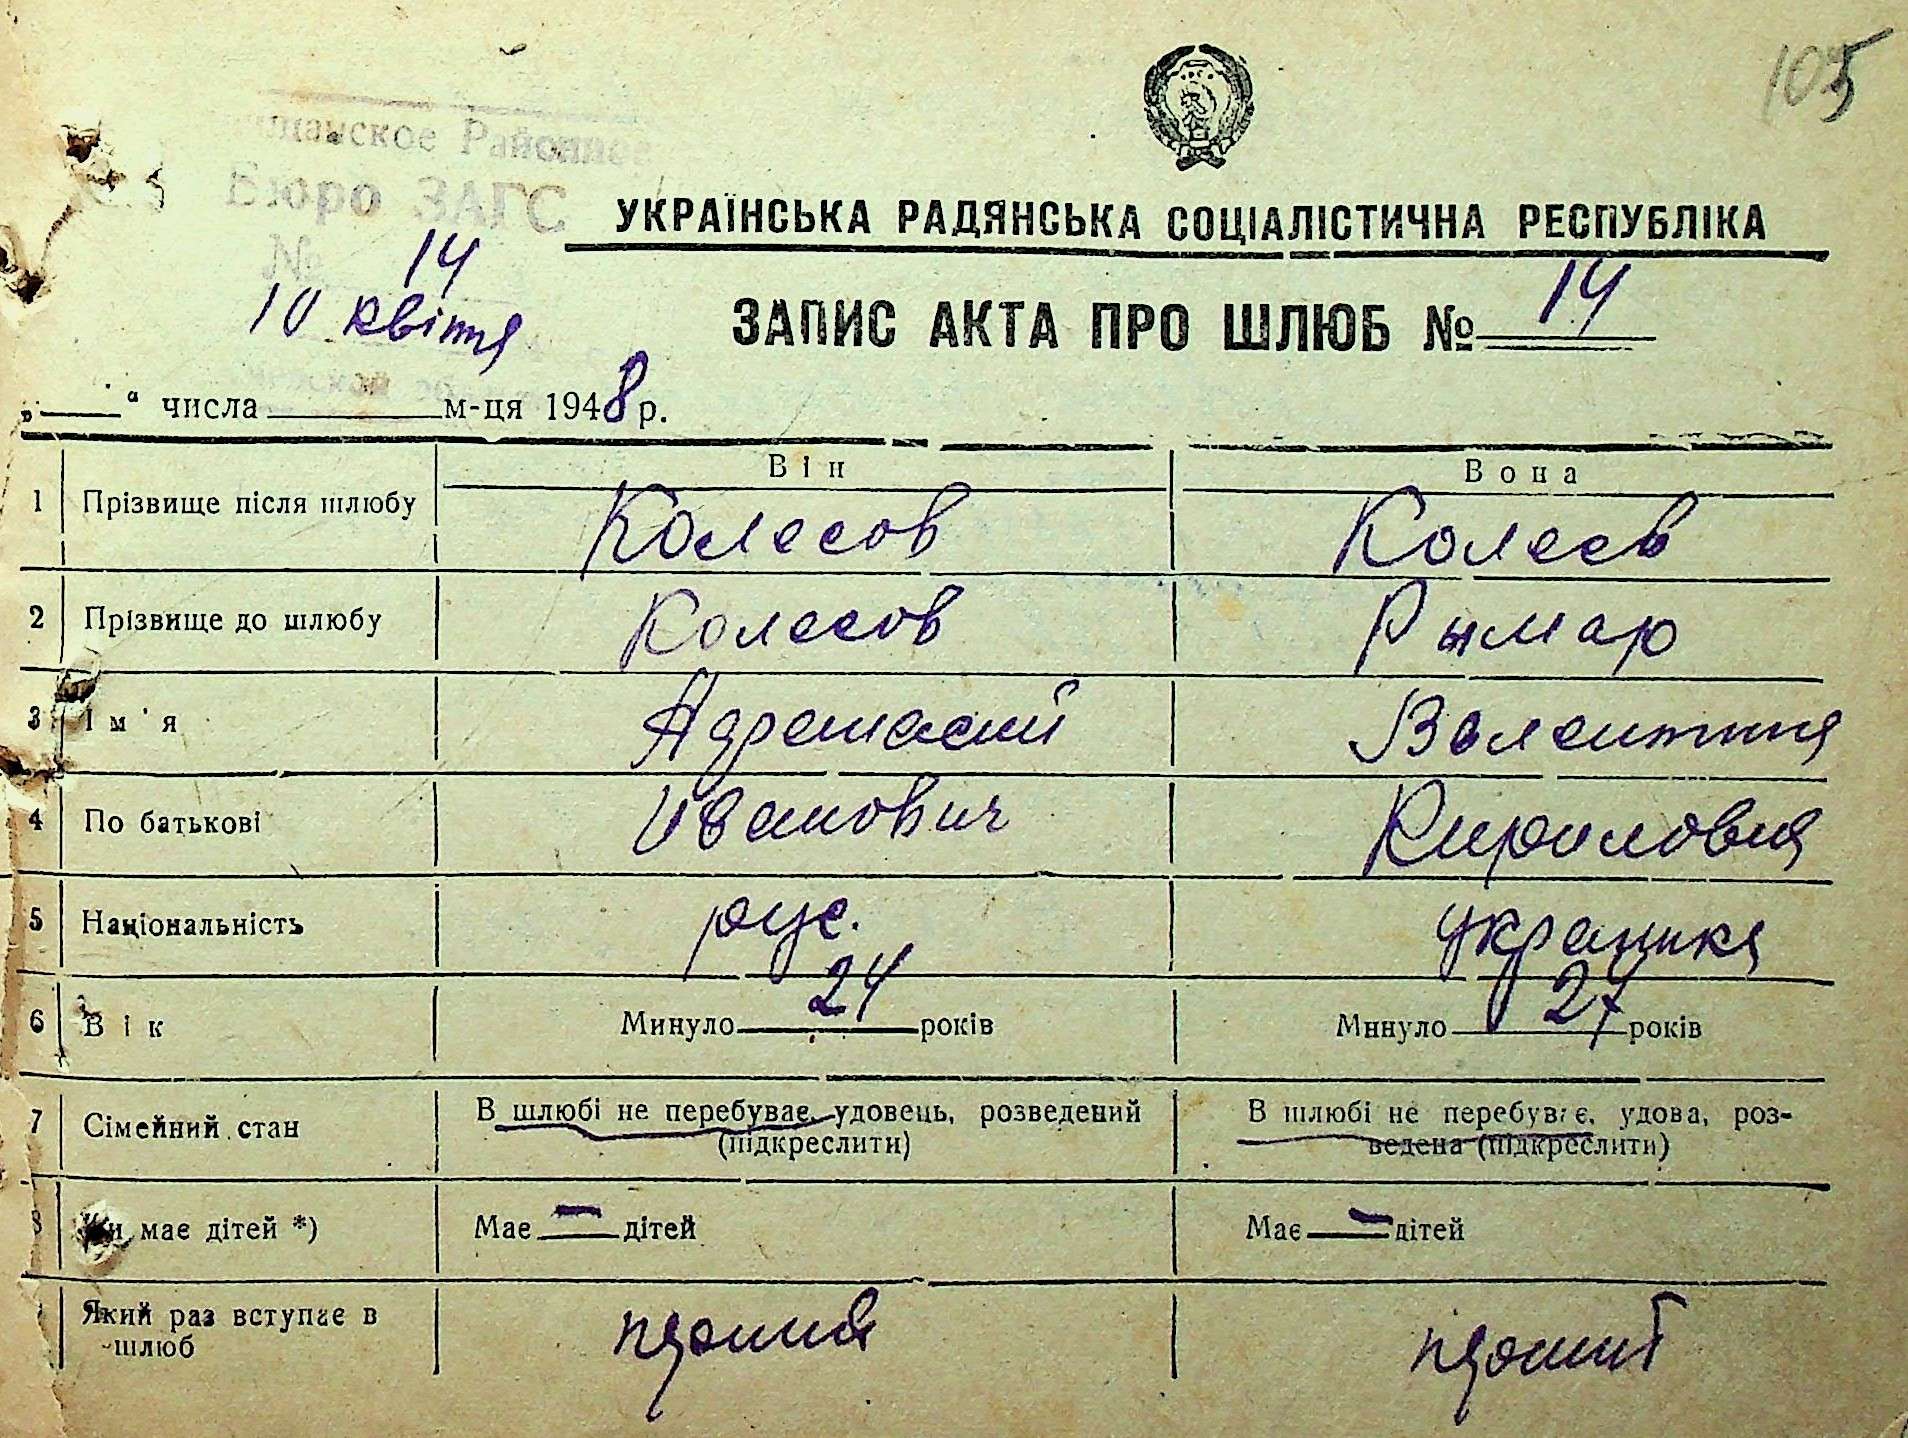 105
Районное
Бюро ЗАГС
№ 14
10 квітня
УКРАЇНСЬКА РАДЯНСЬКА СОЦІАЛІСТИЧНА РЕСПУБЛІКА
ЗАПИС АКТА ПРО ШЛЮБ № 14
„ “ числа м-ця 1948 р.
Він Вона
1 Прізвище після шлюбу Колесов Колесв
2 Прізвище до шлюбу Колесов Рымар
3 Ім'я Валентина
4 По батькові Иванович Кириловна
5 Національність рус. украинка
6 Вік Минуло 24 років Минуло 27 років
7 Сімейний стан В шлюбі не перебуває, удовець, розведений (підкреслити) В шлюбі не перебуває, удова, роз-
ведена (підкреслити)
8 Чи має дітей *) Має — дітей Має — дітей
Який раз вступає в
шлюб